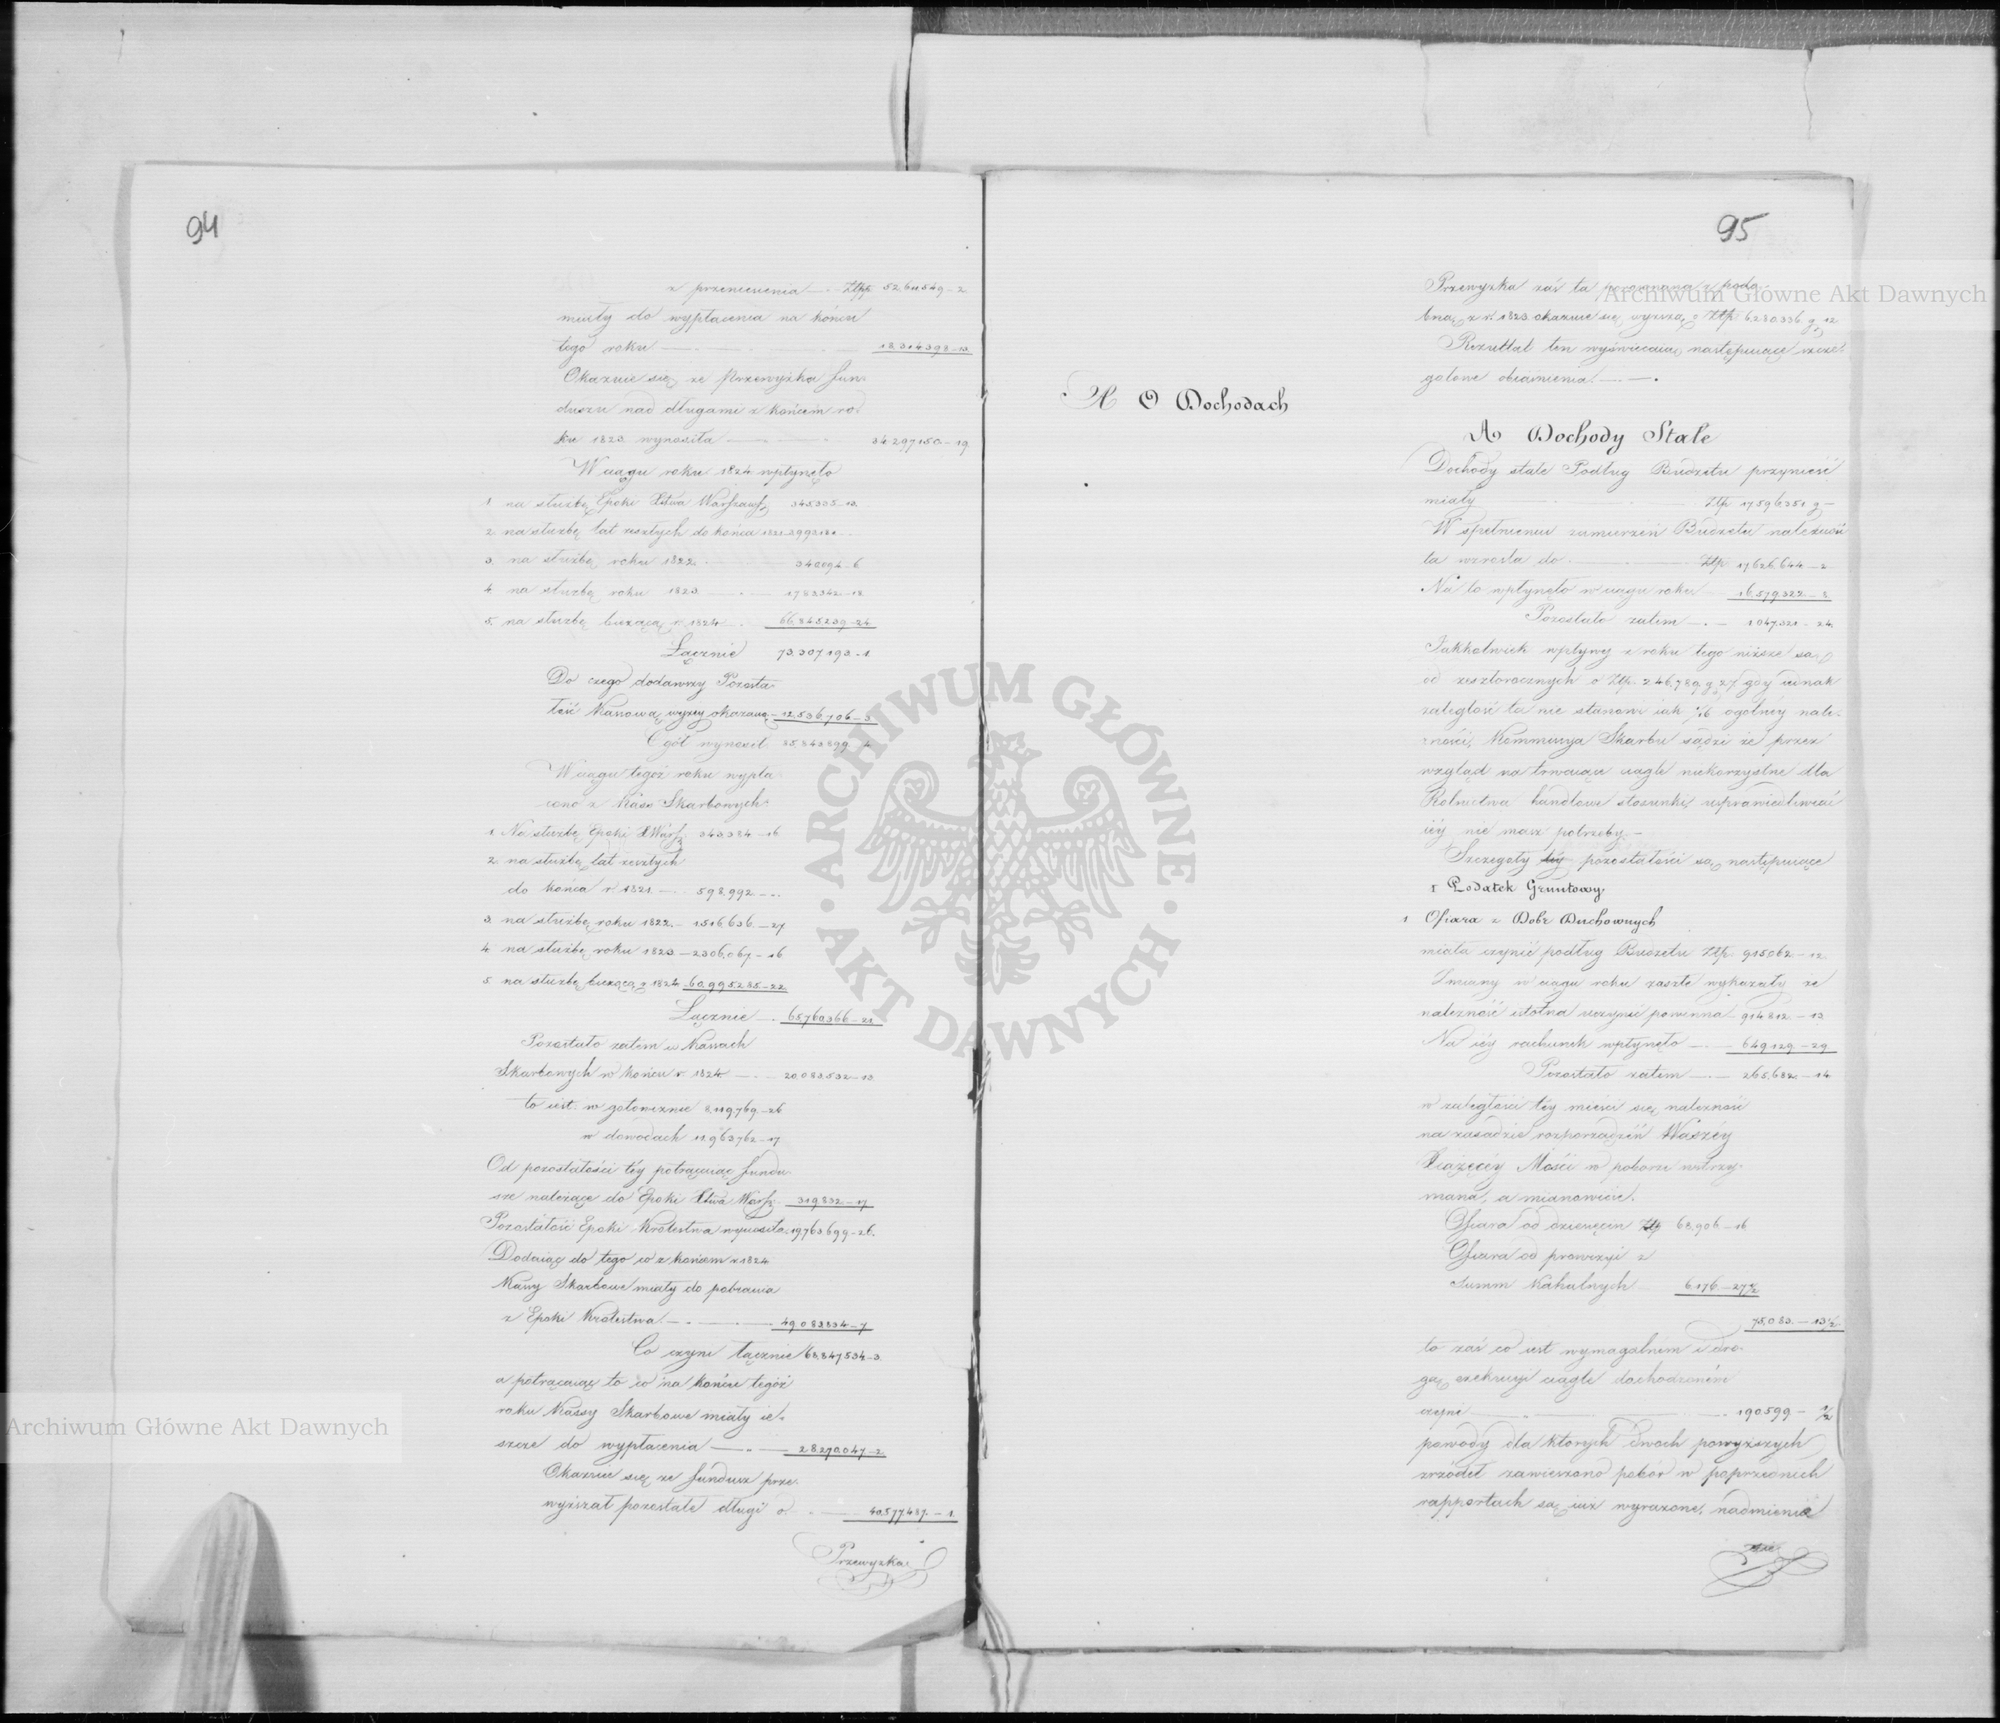 94
z przeniesienia — Złtp. 52,611,549 - 2
miały do wypłacenia na końcu
tego roku — 18,314,398 - 13.
Okazuie się że Przewyżka fun-
duszu nad długami z końcem ro-
ku 1823 wynosiła — 34,297,150 - 19.
W ciągu roku 1824 wpłynęło
1. na służbę Epoki Xstwa Warszaws. 345,335 - 13.
2. na służbę lat zeszłych do końca 1821
3. na służbę roku 1822 — 340,094 - 6
4. na służbę roku 1823 — 1,783,342 - 18
5. na służbę bieżącą r. 1824 — 66,845,239 - 24
Łącznie 73,307,193 - 1
Do czego dodawszy Pozosta-
łość Kassową wyżey okazaną — 12,536,706 - 3
Ogół wynosił 85,843,899 - 4
W ciągu tegoż roku wypła-
cono z Kass Skarbowych
1. Na służbę Epoki X Warsz. 343,384 - 16
2. na służbę lat zeszłych
do końca r. 1821 — 598,992 - -
3. na służbę roku 1822 — 1,516,636 - 27
4. na służbę roku 1823 — 2,306,067 - 16
5. na służbę bieżącą r. 1824 — 60,995,285 - 22
Łącznie — 65,760,366 - 21
Pozostało zatem w Kassach
Skarbowych w końcu r. 1824 — 20,083,532 - 13
to iest: w gotowiźnie 8,119,769 - 26
w dowodach 11,963,762 - 17
Od pozostałości téy potrącaiąc fundu-
sze należące do Epoki Xstwa Warsz. 319,832 - 17
Pozostałość Epoki Królestwa wynosiła 19,763,699 - 26.
Dodaiąc do tego co z końcem r 1824
Kassy Skarbowe miały do pobrania
z Epoki Królestwa — 49,083,834 - 7
Co czyni łącznie 68,847,534 - 3
a potrącaiąc to co na końcu tegoż
roku Kassy Skarbowe miały ie-
szcze do wypłacenia — 28,270,047 - 2
Okazuie się że fundusz prze-
wyższał pozostałe długi o — 40,577,487 - 1.
Przewyżka
95
Przewyżka zaś ta porównana z podo-
bną z r. 1823 okazuie się wyższą o Złtp 6,280,336 g. 12.
Rezultat ten wyświecaią następuiące szcze-
gołowe obiasnienia. —
A O Dochodach
A. Dochody Stałe
Dochody stałe Podług Budżetu przynieść
miały — Złtp 17,596,351 g —
W spełnieniu zamierzeń Budżetu należność
ta wzrosła do — Złtp. 17,626,644 - 2
Na to wpłynęło w ciągu roku — 16,579,322 - 8
Pozostało zatem — 1,047,321 - 24.
Jakkolwiek wpływy z roku tego niższe są
od zeszłorocznych o Złtp. 246,789 g. 27 gdy iednak
zaległość ta nie stanowi iak 1/16 ogólney nale-
żności, Kommissya Skarbu sądzi że przez
wzgląd na trwaiące ciągle niekorzystne dla
Rolnictwa handlowe stosunki, usprawiedliwiać
iéy nie masz potrzeby. —
Szczegóły téy pozostałości są następuiące
1 Podatek Gruntowy
1. Ofiara z Dobr Duchownych
miała czynić podług Budżetu Złtp. 915,062 - 12.
Zmiany w ciągu roku zaszłe wykazały że
należność istotna uczynić powinna 914,812 - 13
Na iéy rachunek wpłynęło — 649,129 - 29
Pozostało zatem — 265,682 - 14
w zaległości téy mieści się należność
na zasadzie rozporządzeń Waszéy
Xiążęcéy Mości w poborze wstrzy-
mana, a mianowicie.
Ofiara od dziesięcin Złtp 68,906 - 16
Ofiara od prowizyi z
Summ Kahalnych — 6,176 - 27 1/2
75,083 - 13 1/2
to zaś co iest wymagalném i dro-
gą exekucyi ciągle dochodzoném
czyni — 190,599 - 1/2
powody dla których dwóch powyższych
źródeł zawieszono pobór w poprzednich
rapportach są iuż wyrażone, nadmienia
Archiwum Główne Akt Dawnych
Archiwum Główne Akt Dawnych
ARCHIWUM GŁÓWNE · AKT DAWNYCH ·